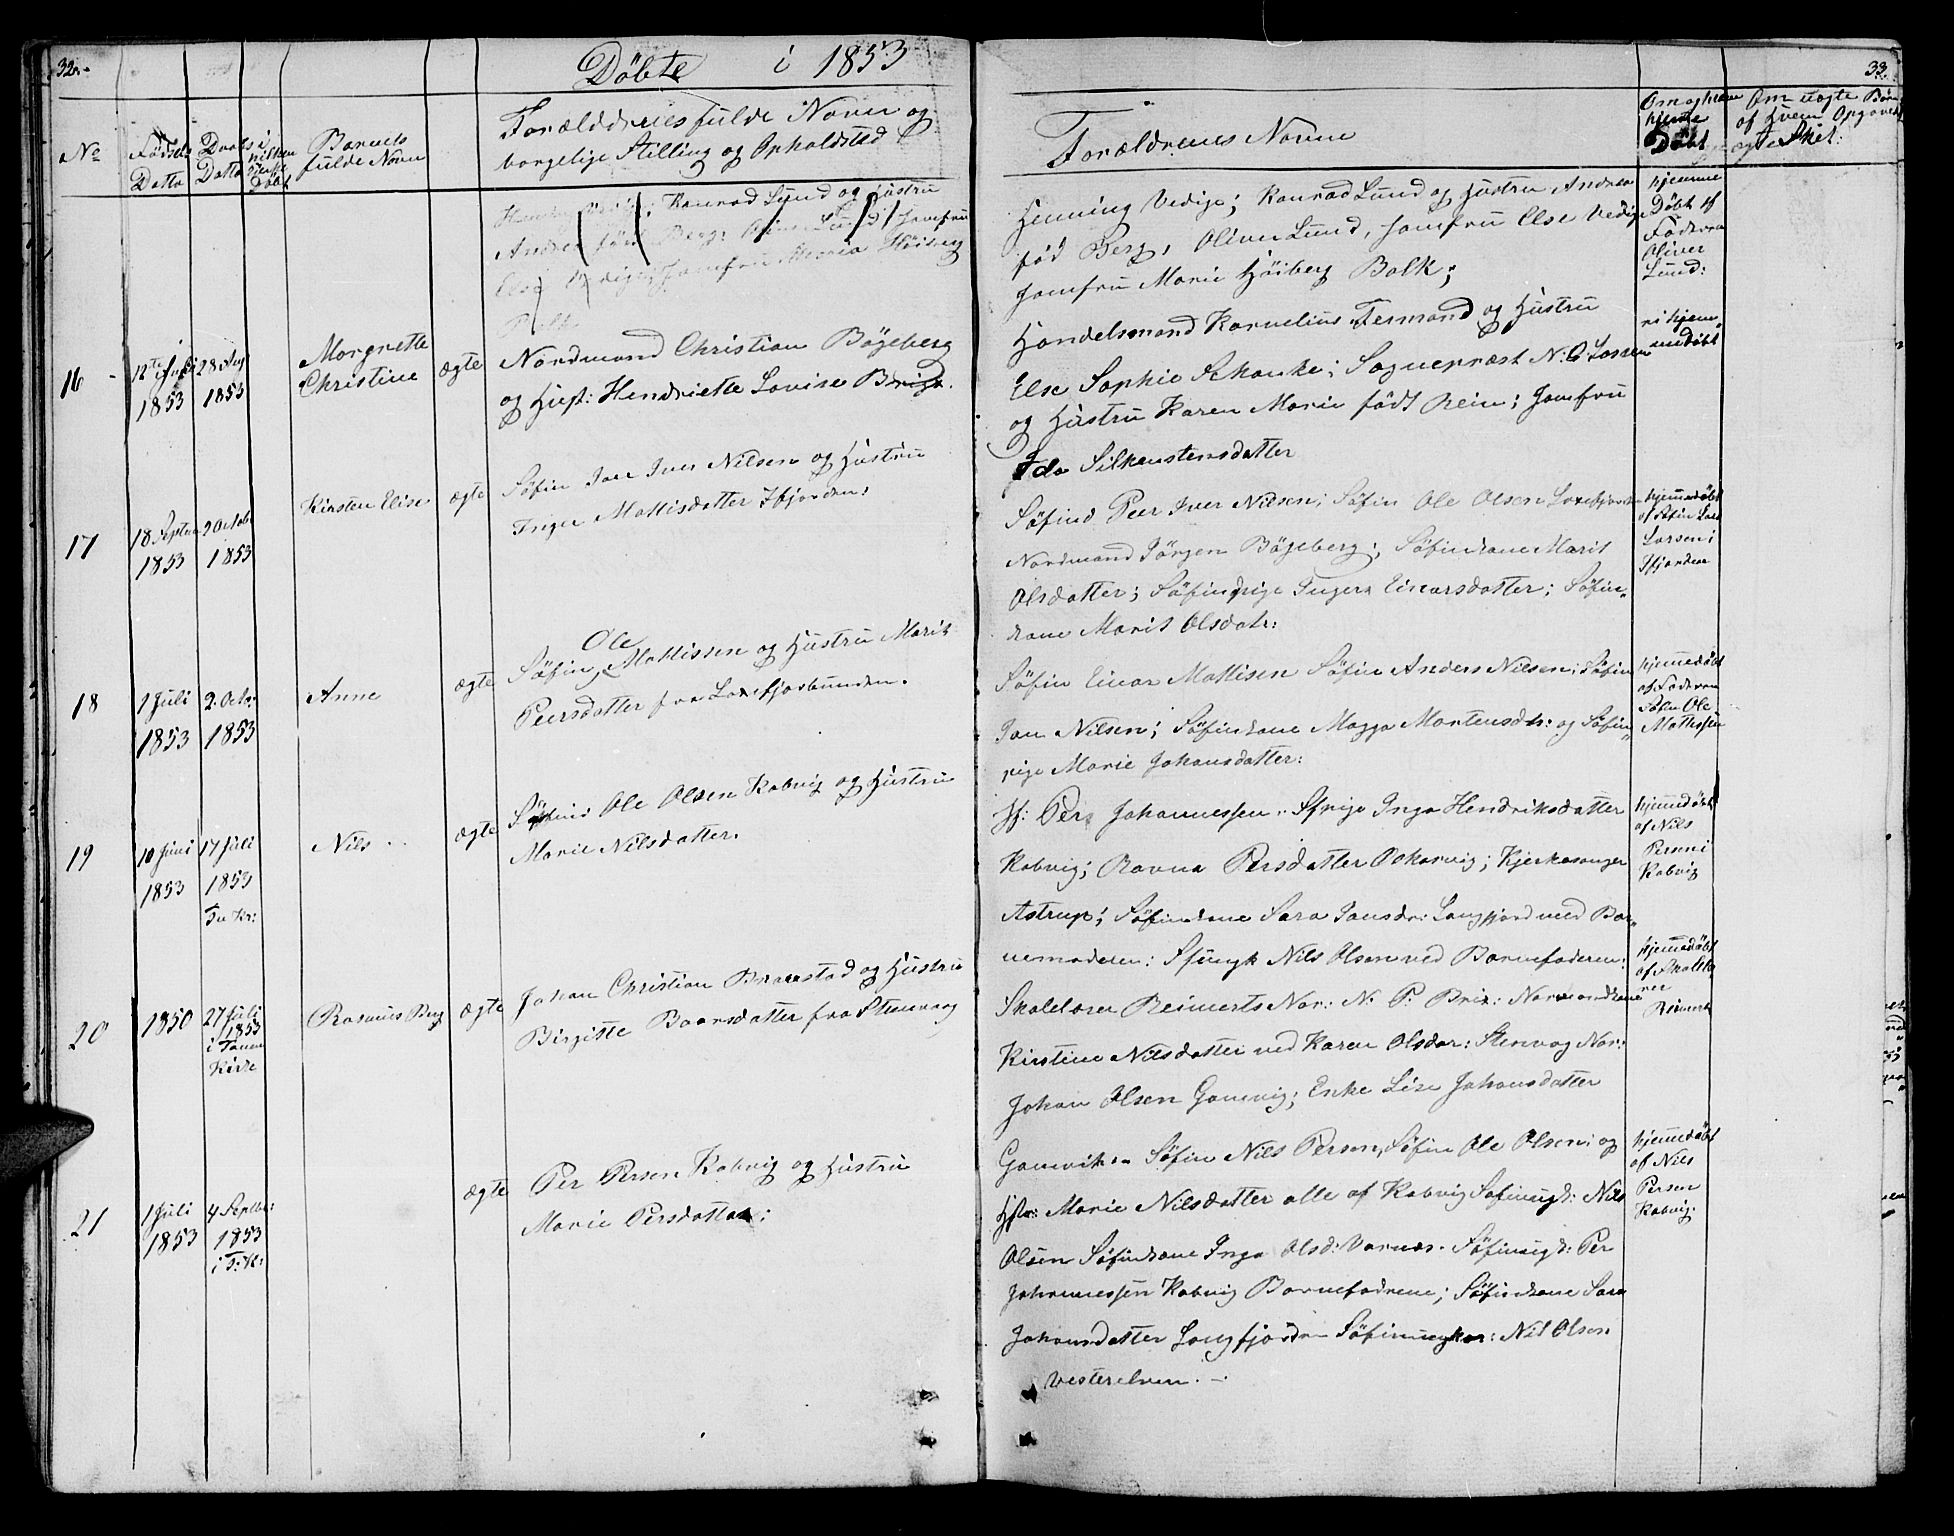 32.
Döbte i 1853
No
Födsels Datto
Daabs Datto
Barnets fulde Navn
Forælddrenes fulde Navne og
borgelige Stilling og Opholdsted
Konrad Lund og Hustru
Andrea född Berg; Lund Jomfru
Else Jomfru Maria Höiberg
Balk
16
12te Juli 1853
28 Aug 1853
Morgrette Christine
ægte
Nordmand Christian Bögeberg
og Hust: Hendriette Lovise
17
18 Septem 1853
9 Octob 1853
Kirsten Elise
ægte
Söfin Iver Nilsen og Hustru
Inger Mattisdatter Ifjorden:
18
1 Juli 1853
2. Octo. 1853
Anne
ægte
Ole
Söfin, Mattissen og Hustru Marit
Peersdatter fra
19
10 Juni 1853
17 Juli 1853
Nils
ægte
Ole Olsen Kobvig og Hustru
Marie Nilsdatter.
20
1850
27 Juli 1853
i Tanen Kirke
Rasmus Berg
ægte
Johan Christian og Hustru
Birgitte Baarsdatter fra
21
1 Juli 1853
4 Septbr: 1853
i T: K:
ægte
Per Persen Kobvig og Hustru
Marie Persdatter;
33
Forældrenes Navne
Döbt
Om uægte Börn
af Hvem Opgaven
Henning Vedige; Konrad Lund og Hustru Andrea
föd Berg, Oliver Lund, Jomfru Else Vedige
Jomfru Marie Höiberg Balk;
hjemme
Döbt af
Oliver
Lund:
Handelsmand Kornelius Fermand og Hustru
Else Sophie Schanke; Sognepræst N: G Lassen
og Hustru Karen Marie född Rein; Jomfru
Ida Silkenstensdatter
Söfind Peer Iver Nilsen; Söfin Ole Olsen
Nordmand Jörgen Bögeberg; Söfinkone Marit
Olsdatter; Söfinpige Inger Einarsdatter; Söfin„
kone Marit Olsdatr:
hjemedöbt
af Söfin Lars
Larsen i
Ifjorden
Söfin Einar Mattisen Söfin Anders Nilsen; Söfin
Jon Nilsen; Söfinkone Magga Mortensdtr: og Söfin„
pige Marie Johansdatter:
hjemedöbt
af Faderen
Söfin Ole
Mattissen
Sf: Per Johannessen. Sfpige Inga Hendriksdatter
Kobvig; Ravna Persdatter Kjerkesanger
Astrup; Söfinkone Sara Jonsdr: Langfjord med Bar„
nemoderen: Sfungk Nils Olsen ved Barnefaderen:
hjemedöbt
af Nils
Persen i
Kobvig
Skolelærer Reimerts Nor: N: P: Brix: Normandkone
Kirstine Nilsdatter ved Karen Olsdar: Stenvog Nor:
Johan Olsen Gamvig; Enke Lise Johansdatter
Gamvik.
hjemedöbt
af Skolelæ
rer
Reimert
Söfin Nils Persen, Söfin Ole Olsen; og
Hstr: Marie Nilsdatter alle af Kobvig Söfinugk: Nils
Olsen Söfinkone Inga Olsd: Varnæs. Söfinugk: Per
Johannessen Kobvig Barnefadrene; Söfinkone Sara
Johansdatter Langfjorden Söfinungkar: Nil Olsen
Vesterelven. –
hjemedöbt
af Nils
Persen
Kobvig.